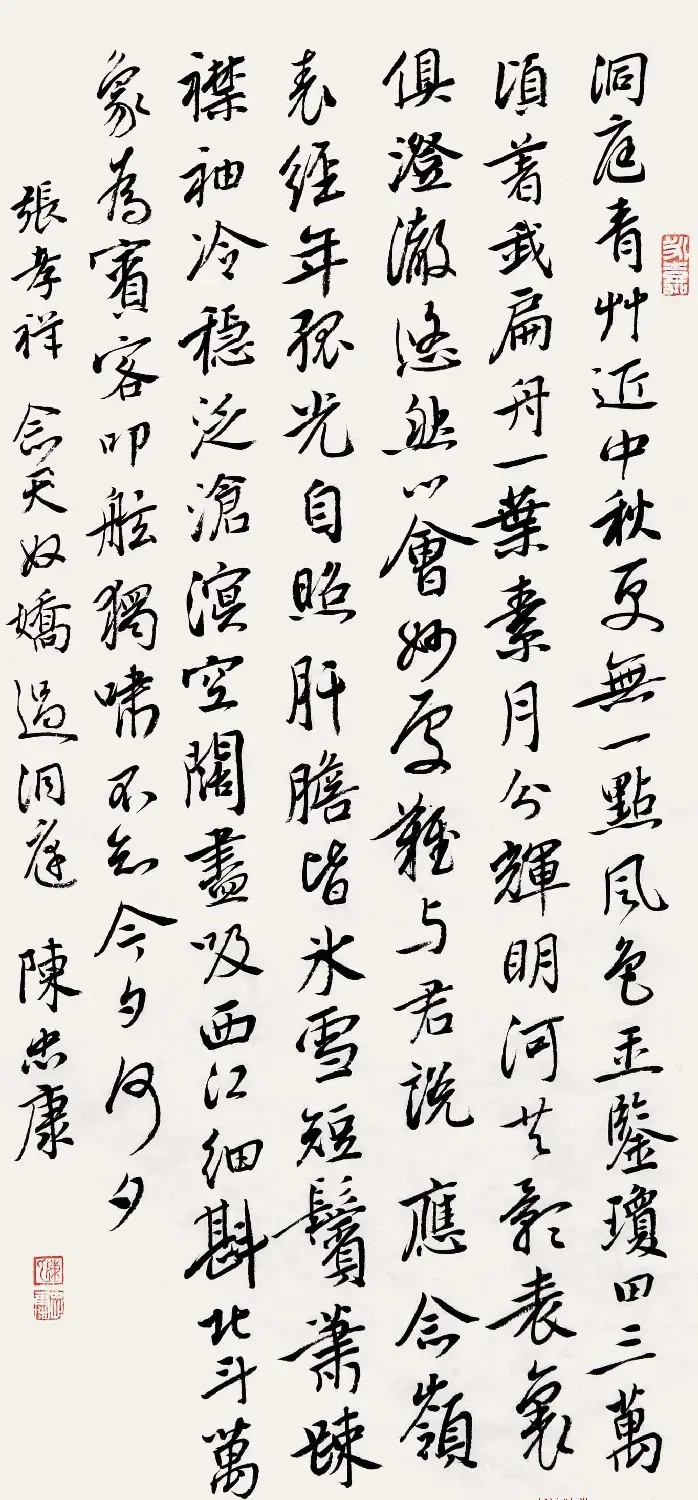 洞庭青艸近中秋更無一點風色玉鑒瓊田三萬
頃著我扁舟一葉素月分輝明河共影表裏
俱澄澈悠然心會妙處難与君說應念嶺
表經年孤光自照肝膽皆氷雪短鬢蕭疎
襟袖冷穩泛滄溟空闊盡吸西江細斟北斗萬
象為賓客叩舷獨嘯不知今夕何夕
張孝祥念天奴嬌過洞庭陳忠康